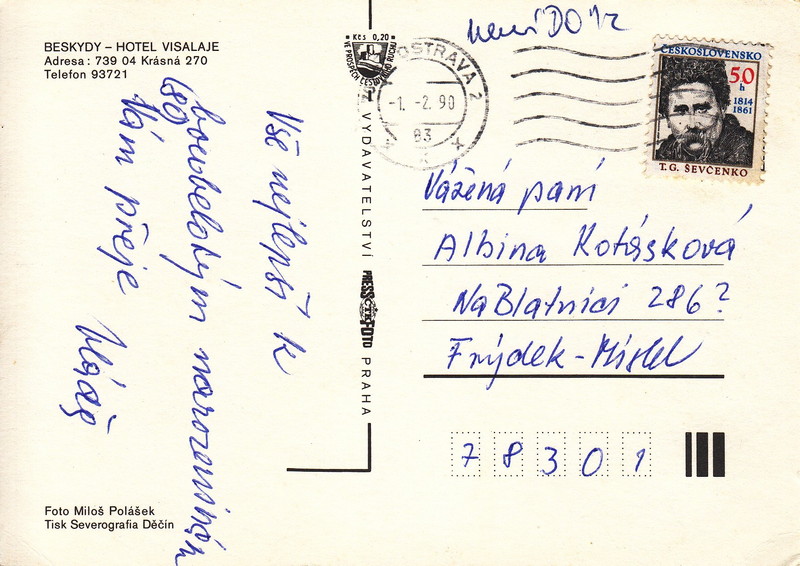 BESKYDY – HOTEL VISALAJE
Adresa : 739 04 Krásná 270
Telefon 93721
Vše nejlepší k
narozeninám
(80)
Vám přeje
Foto Miloš Polášek
Tisk Severografia Děčín
Kčs 0,20
VE PROSPĚCH ČESKÉHO FONDU
VYDAVATELSTVÍ
PRESSFOTO
ČTK
PRAHA
není DO
OSTRAVA 2
-1. -2. 90
03
ČESKOSLOVENSKO
50
h
1814
1861
T.G. ŠEVČENKO
Vážená paní
Albina Kotásková
Na Blatnici 286?
Frýdek-Místek
78301